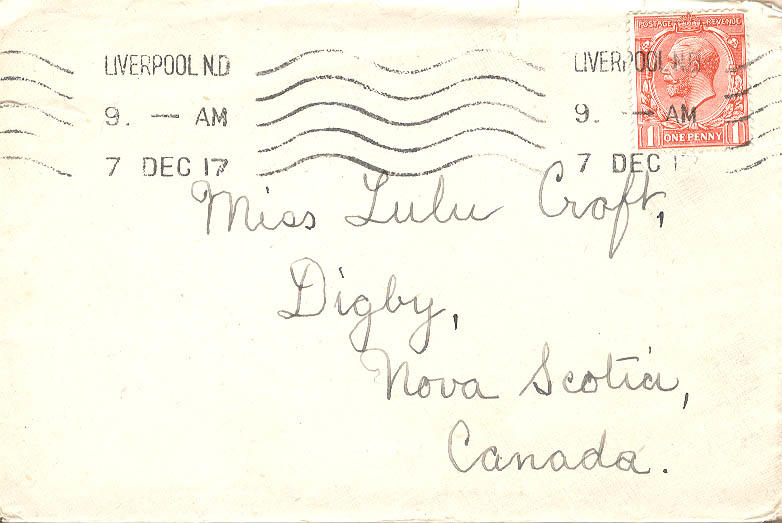 LIVERPOOL N.D
9. — AM
7 DEC 17
LIVERPOOL N.D
9. — AM
7 DEC 1
POSTAGE REVENUE
1 ONE PENNY 1
Miss Lulu Croft,
Digby,
Nova Scotia,
Canada.